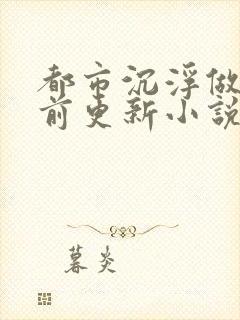 都市沉浮做
前更新小説
暮炎